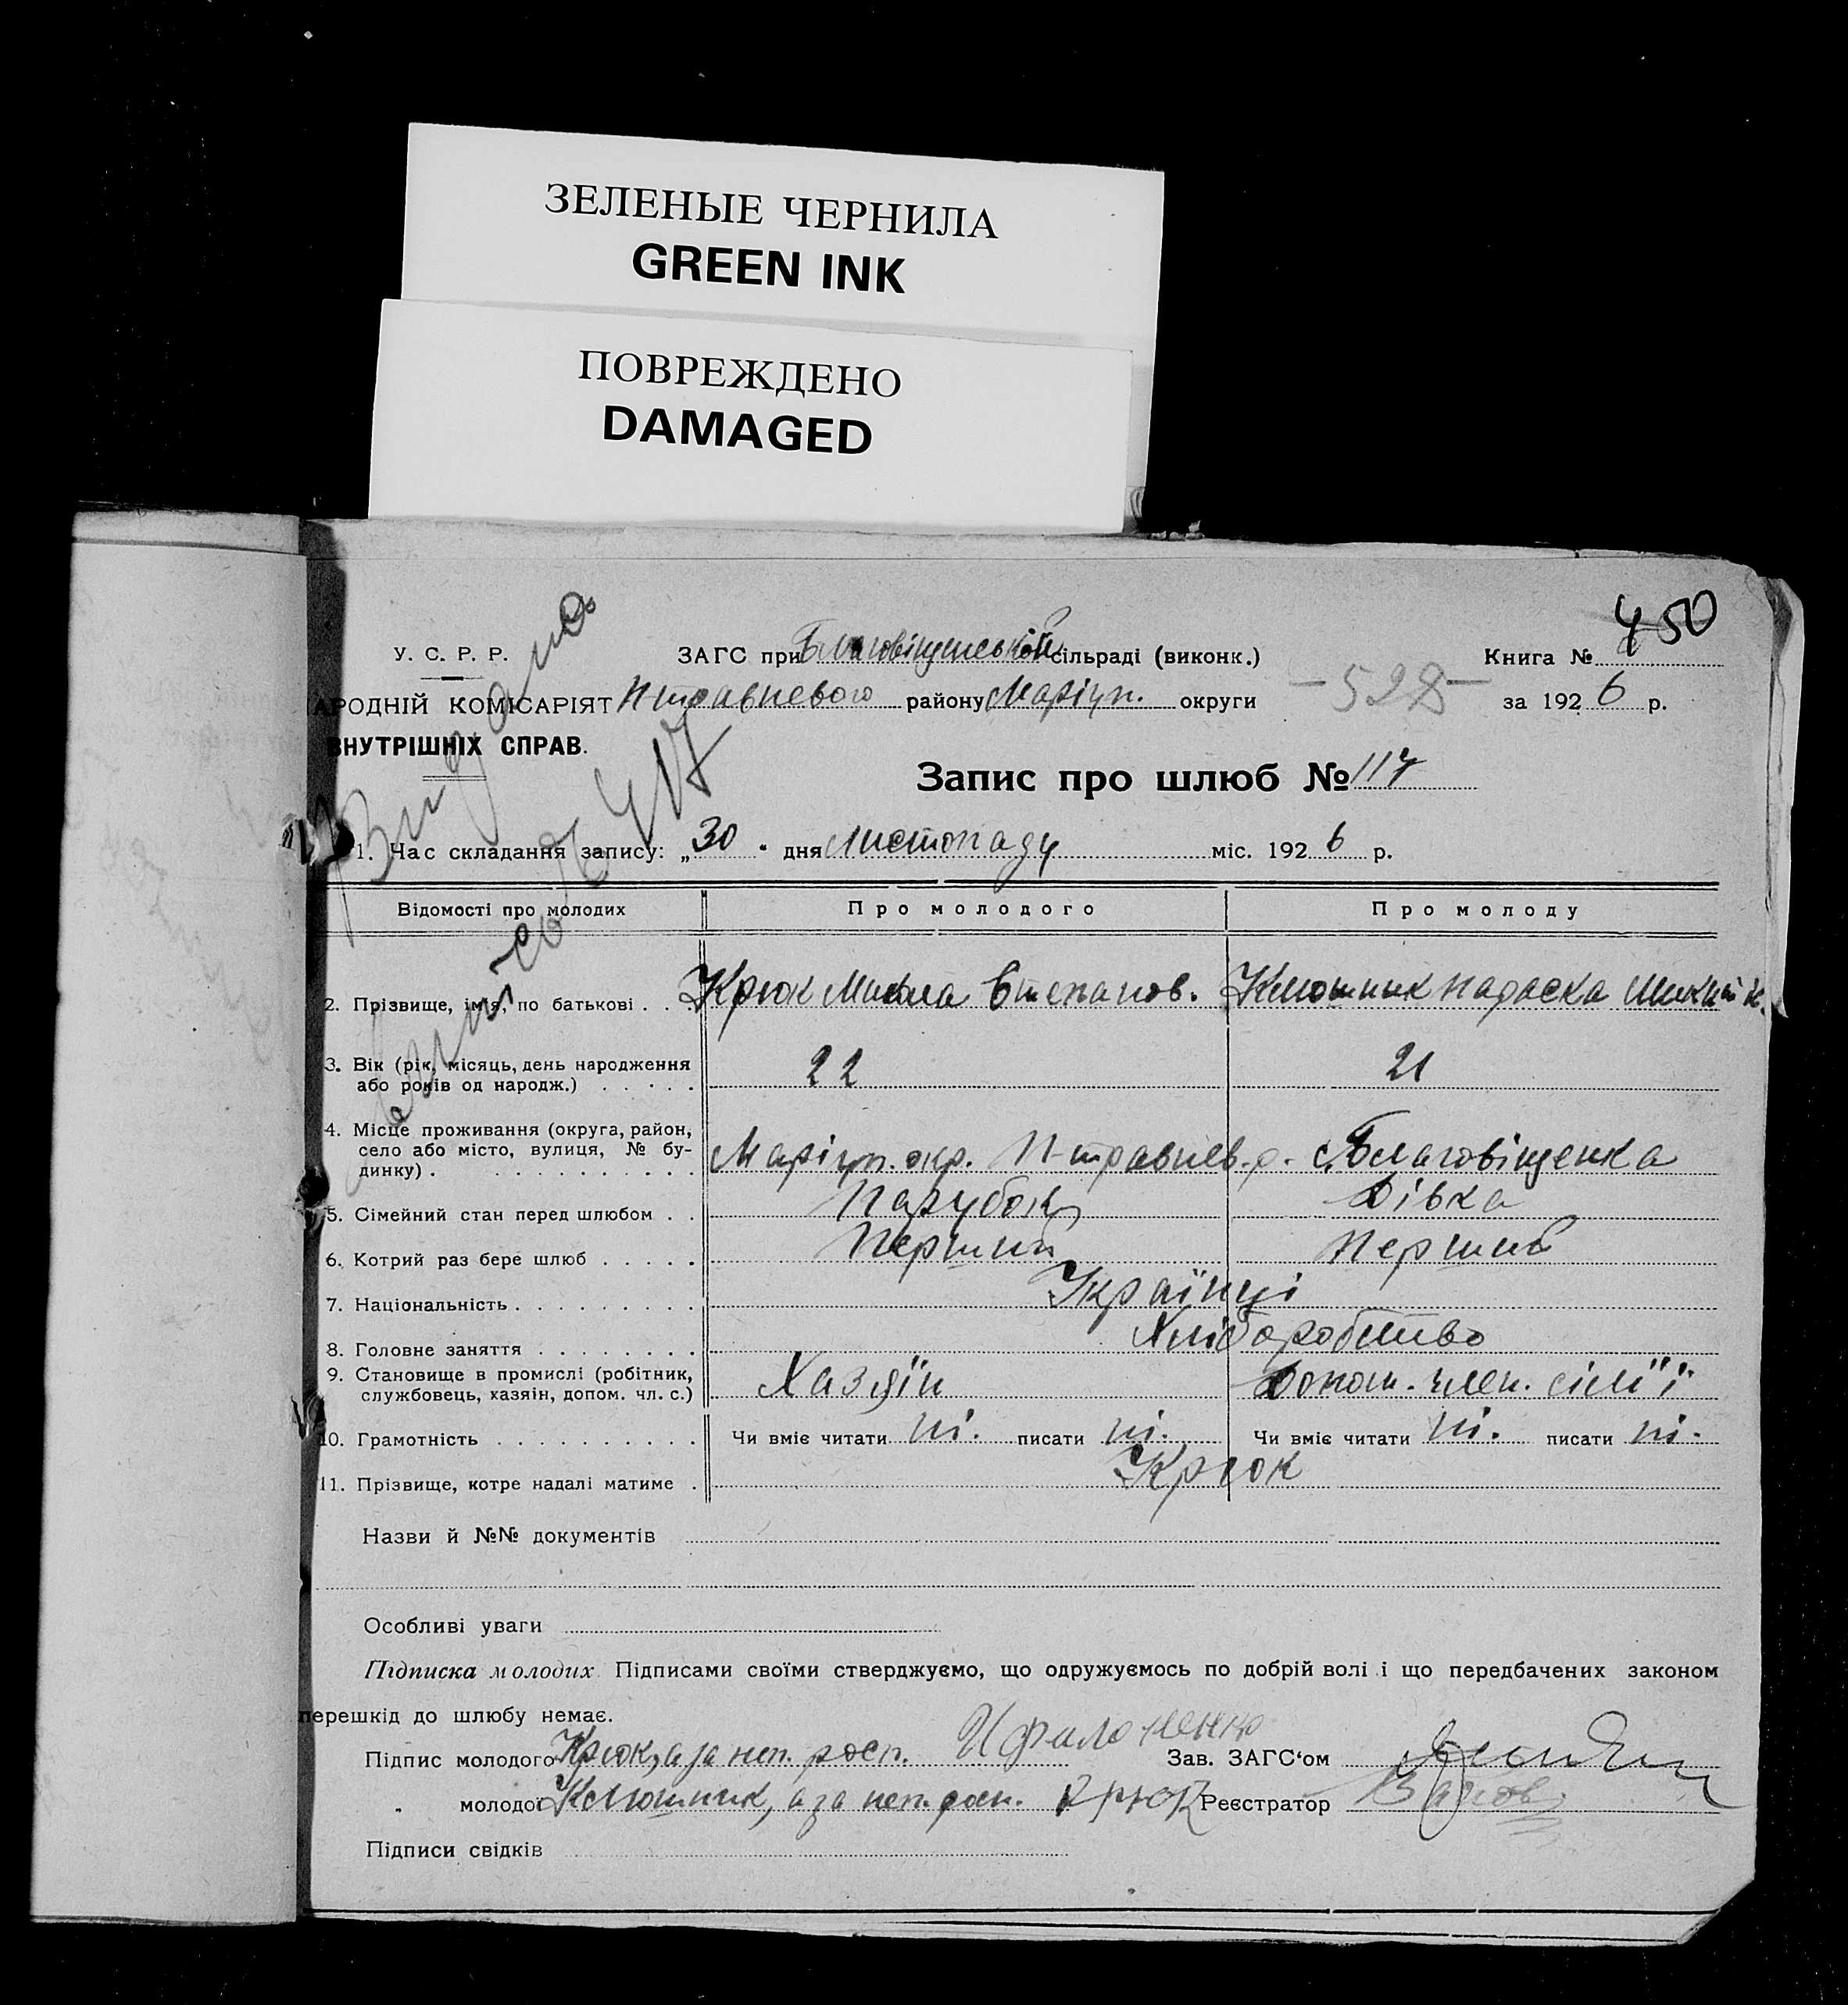 ЗЕЛЕНЫЕ ЧЕРНИЛА
GREEN INK
ПОВРЕЖДЕНО
DAMAGED
450
У. С. Р. Р.
ЗАГС при Благовіщенській сільраді (виконк.)
Книга №
АРОДНІЙ КОМІСАРІЯТ
П-травневого району Маріуп. округи
— 528 —
за 1926 р.
ВНУТРІШНІХ СПРАВ.
Видана
417
Запис про шлюб № 117
1. Час складання запису: „30" дня Листопаду міс. 1926 р.
Відомості про молодих
Про молодого
Про молоду
2. Прізвище, ім'я, по батькові . . . Крюк Микола Степанов. Клюшник Параска
3. Вік (рік, місяць, день народження
або років од народж.) . . . . . 22 21
4. Місце проживання (округа, район,
село або місто, вулиця, № бу-
динку) . . . . . . . . . . Маріуп. окр. П-травнев. р. с. Благовіщенка
5. Сімейний стан перед шлюбом . . Парубок Дівка
6. Котрий раз бере шлюб . . . . . Перший Перший
7. Національність . . . . . . . . . Українці
8. Головне заняття . . . . . . . . Хліборобство
9. Становище в промислі (робітник,
службовець, хазяін, допом. чл. с.) Хазяїн Допом. член. сім'ї
10. Грамотність . . . . . . . . . . Чи вміє читати ні. писати ні. Чи вміє читати ні. писати ні.
11. Прізвище, котре надалі матиме . Крюк
Назви й №№ документів
Особливі уваги
Підписка молодих Підписами своїми стверджуємо, що одружуємось по добрій волі і що передбачених законом
перешкід до шлюбу немає.
Підпис молодого Крюк, а за неп. росп. Зав. ЗАГС‘ом
„ молодої Клюшник, а за неп. росп. Крюк Реєстратор
Підписи свідків